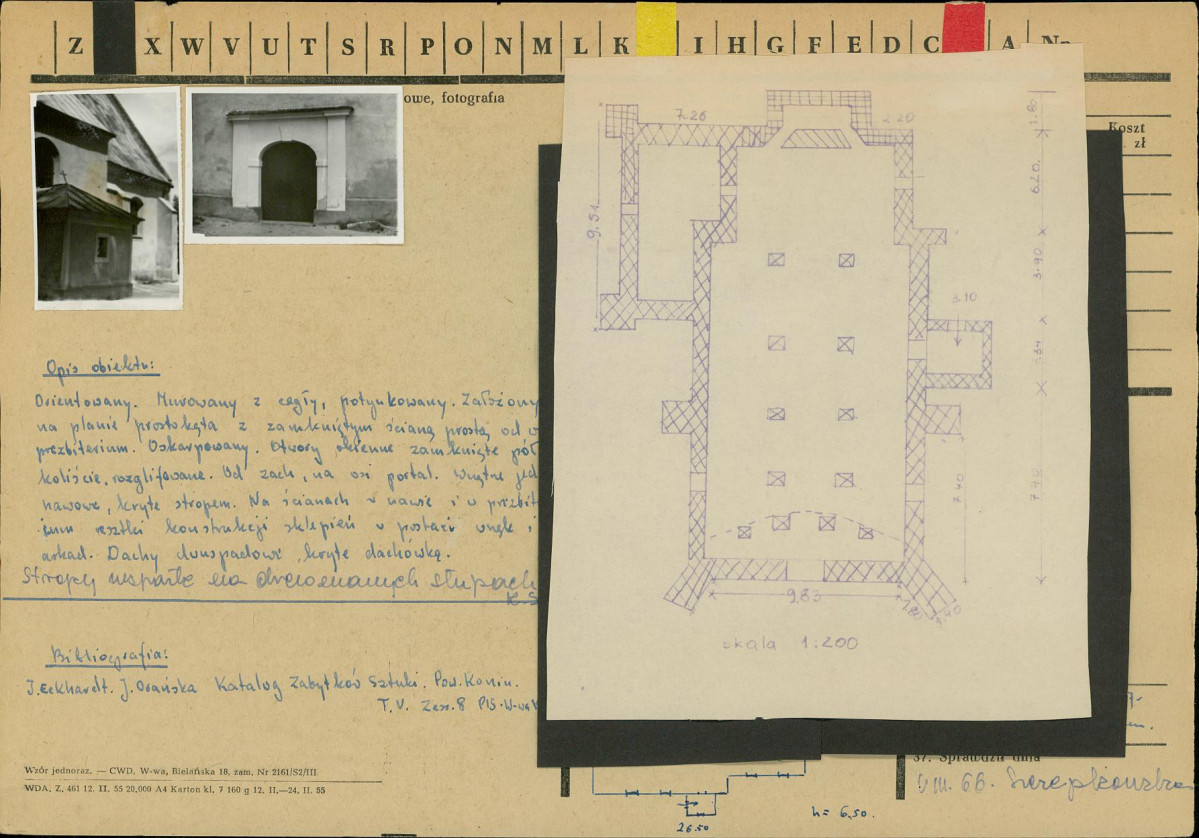 Z X W V U T S R P O N M L K I H G F E D C A Nr
owe, fotografia
Koszt
zł
Opis obiektu:
Orientowany. Murowany z cegły, potynkowany. Założony
na planie prostokąta z zamkniętym ścianą prostą od w
prezbiterium. Oskarpowany. Otwory okienne zamknięte pół
koliście, rozglifowane. Od zach., na osi portal. Wnętrze jed
nawowe, kryte stropem. Na ścianach w nawie i w prezbit
ium resztki konstrukcji sklepień w postaci wnęk i
arkad. Dachy dwuspadowe, kryte dachówką.
Stropy wsparte na drewnianych słupach
K. S
Bibliografia:
J. Eckhardt. J. Orańska Katalog Zabytków Sztuki. Pow. Konin.
T. V. Zesz. 8 PIS. W-wa
Wzór jednoraz. — CWD, W-wa, Bielańska 18, zam. Nr 2161/S2/III
WDA. Z. 461 12. II. 55 20,000 A4 Karton kl. 7 160 g 12. II.—24. II. 55
7.26
2.20
1.80
6.20.
9.51
3.90
3.10
7.40
9,83
1,80
skala 1:200
37. Sprawdził dnia
VIII. 66.
26.50
h = 6,50.